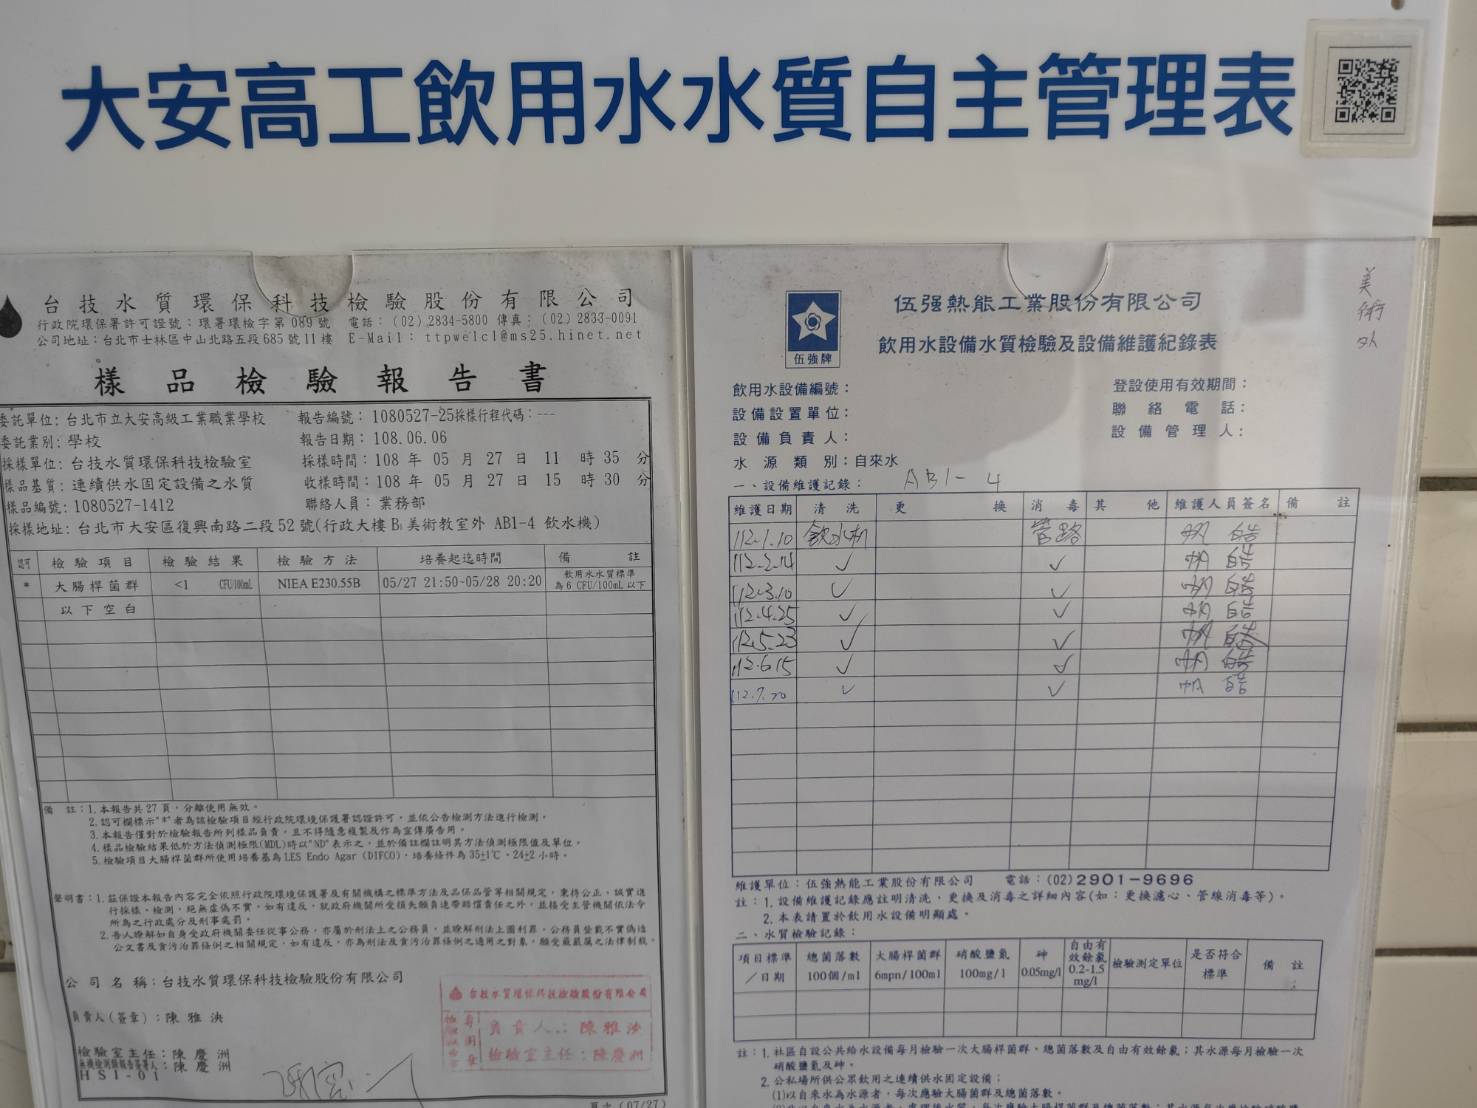 大安高工飲用水水質自主管理表
台技水質環保科技檢驗股份有限公司
行政院環保署許可證號：環署環檢字第089號 電話：(02)2834-5800 傳真：(02)2833-0091
公司地址：台北市士林區中山北路五段685號11樓 E-Mail： ttpwelcl@ms25.hinet.net
樣品檢驗報告書
委託單位：台北市立大安高級工業職業學校 報告編號：1080527-25採樣行程代碼：---
委託業別：學校 報告日期：108.06.06
採樣單位：台技水質環保科技檢驗室 採樣時間：108 年 05 月 27 日 11 時 35 分
樣品基質：連續供水固定設備之水質 收樣時間：108 年 05 月 27 日 15 時 30 分
樣品編號：1080527-1412 聯絡人員：業務部
採樣地址：台北市大安區復興南路二段52號(行政大樓B1美術教室外 AB1-4 飲水機)
認可 檢驗項目 檢驗結果 檢驗方法 培養起迄時間 備註
* 大腸桿菌群 <1 CFU/100mL NIEA E230.55B 05/27 21:50~05/28 20:20 飲用水水質標準
為6 CFU/100mL以下
以下空白
備 註：1.本報告共27頁，分離使用無效。
2.認可欄標示"*"者為該檢驗項目經行政院環境保護署認證許可，並依公告檢測方法進行檢測。
3.本報告僅對於檢驗報告所列樣品負責，且不得隨意複製及作為宣傳廣告用。
4.樣品檢驗結果低於方法偵測極限(MDL)時以"ND"表示之，並於備註欄註明其方法偵測極限值及單位。
5.檢驗項目大腸桿菌群所使用培養基為LES Endo Agar (DIFCO)，培養條件為35±1℃、24±2小時。
聲明書：1.茲保證本報告內容完全依照行政院環境保護署及有關機構之標準方法及品保品管等相關規定，秉持公正、誠實進
行採樣、檢測，絕無虛偽不實，如有違反，就政府機關所受損失願負連帶賠償責任之外，並接受主管機關依法令
所為之行政處分及刑事處罰。
2.吾人瞭解如自身受政府機關委任從事公務，亦屬於刑法上之公務員，並瞭解刑法上圖利罪、公務員登載不實偽造
公文書及貪污治罪條例之相關規定，如有違反，亦為刑法及貪污治罪條例之適用之對象，願受最嚴厲之法律制裁。
公司名稱：台技水質環保科技檢驗股份有限公司
負責人(簽章)：陳雅泱
檢驗室主任：陳慶洲
無機檢測類報告簽署人：陳慶洲
HSI-01
台技水質環保科技檢驗股份有限公司
負責人：陳雅泱
檢驗室主任：陳慶洲
頁次(07/27)
伍強牌
伍强熱能工業股份有限公司
飲用水設備水質檢驗及設備維護紀錄表
美術外
飲用水設備編號：
設備設置單位：
設備負責人：
水源類別：自來水
登設使用有效期間：
聯絡電話：
設備管理人：
一、設備維護記錄： AB1-4
維護日期 清洗 更換 消毒 其他 維護人員簽名 備註
112.1.10 飲水機 管路
112.2.14 ✓ ✓
112.3.10 ✓ ✓
112.4.25 ✓ ✓
112.5.23 ✓ ✓
112.6.15 ✓ ✓
112.7.20 ✓ ✓
維護單位：伍強熱能工業股份有限公司 電話：(02)2901-9696
註：1.設備維護記錄應註明清洗、更換及消毒之詳細內容(如：更換濾心、管線消毒等)。
2.本表請置於飲用水設備明顯處。
二、水質檢驗記錄：
項目標準／日期 總菌落數 100個/ml 大腸桿菌群 6mpn/100ml 硝酸鹽氮 100mg/l 砷 0.05mg/l 自由有效餘氯 0.2-1.5 mg/l 檢驗測定單位 是否符合標準 備註
註：1.社區自設公共給水設備每月檢驗一次大腸桿菌群、總菌落數及自由有效餘氯；其水源每月檢驗一次
硝酸鹽氮及砷。
2.公私場所供公眾飲用之連續供水固定設備；
(1)以自來水為水源者，每次應驗大腸菌群及總菌落數。